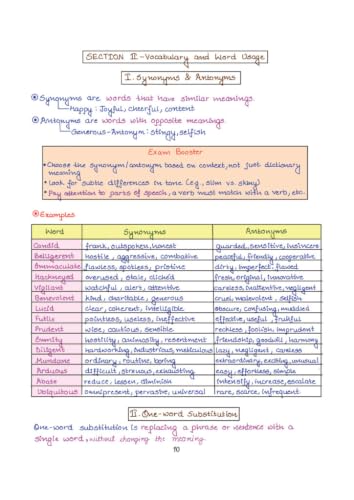 SECTION II:-Vocabulary and Word Usage
I. Synonyms & Antonyms
Synonyms are words that have similar meanings.
Happy: Joyful, cheerful, content
Antonyms are words with opposite meanings.
Generous-Antonym: Stingy, selfish
Exam Booster
• Choose the synonym/antonym based on context, not just dictionary
meaning
• Look for subtle differences in tone (e.g., slim vs. skinny)
• Pay attention to parts of speech, a verb must match with a verb, etc.
Examples
Word Synonyms Antonyms
Candid frank, outspoken, honest guarded, sensitive, insincere
Belligerent hostile, aggressive, combative peaceful, friendly, cooperative
Immaculate flawless, spotless, pristine dirty, imperfect, flawed
Hackneyed overused, stale, clichéd fresh, original, innovative
Vigilant watchful, alert, attentive careless, inattentive, negligent
Benevolent kind, charitable, generous cruel, malevolent, selfish
Lucid clear, coherent, intelligible obscure, confusing, muddled
Futile pointless, useless, ineffective effective, useful, fruitful
Prudent wise, cautious, sensible reckless, foolish, imprudent
Enmity hostility, animosity, resentment friendship, goodwill, harmony
Diligent hardworking, industrious, meticulous lazy, negligent, careless
Mundane ordinary, routine, boring extraordinary, exciting, unusual
Arduous difficult, strenuous, exhausting easy, effortless, simple
Abate reduce, lessen, diminish intensify, increase, escalate
Ubiquitous omnipresent, pervasive, universal rare, scarce, infrequent
II. One-word Substitution
One-word substitution is replacing a phrase or sentence with a
single word, without changing the meaning.
10